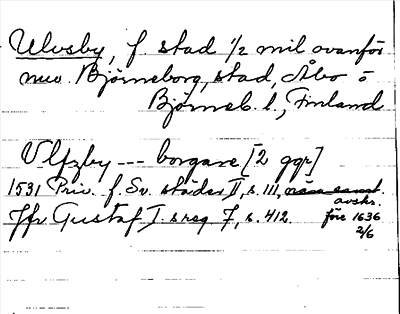 Ulvsby, f stad ½ mil ovanför
nuv. Björneborg, stad, Åbo o
Björneb. l., Finland
Vlfzby --- borgare [2 ggr]
1531 Priv. f. Sv. städer II, s. 111,
avskr.
Jfr Gustaf I:s reg 7, s. 412. före 1636
2/6